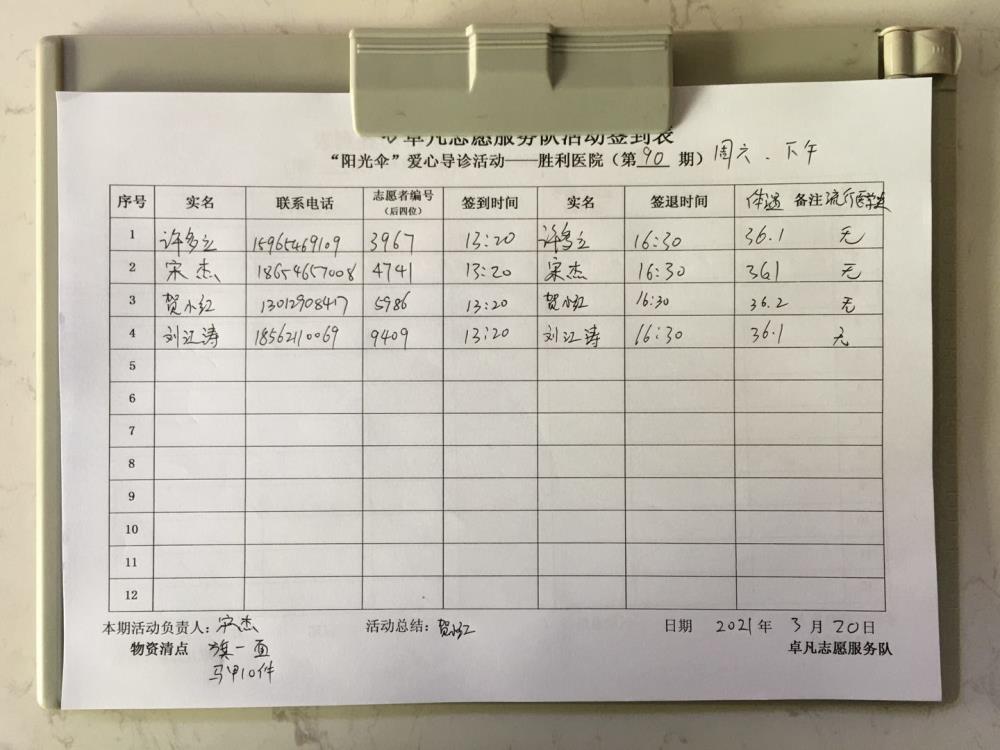 卓凡志愿服务队活动签到表
“阳光伞”爱心导诊活动——胜利医院（第90期）周六．下午
序号 实名 联系电话 志愿者编号（后四位） 签到时间 实名 签退时间 体温 备注 流行医学史
1 许多立 15965469109 3967 13:20 许多立 16:30 36.1 无
2 宋杰 18654657008 4741 13:20 宋杰 16:30 361 无
3 贺小红 13012908417 5986 13:20 贺小红 16:30 36.2 无
4 刘江涛 18562110069 9409 13:20 刘江涛 16:30 36.1 无
5
6
7
8
9
10
11
12
本期活动负责人：宋杰 活动总结：贺小红 日期 2021年3月20日
物资清点 旗一面 卓凡志愿服务队
马甲10件